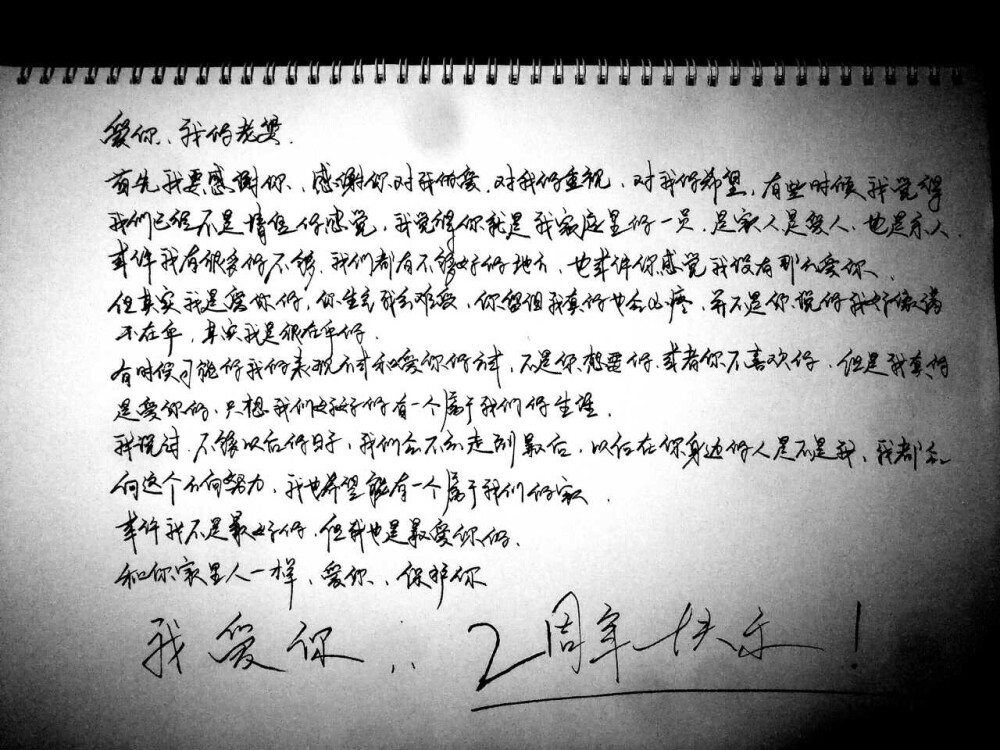 爱你、我的老婆.
首先我要感谢你、感谢你对我的爱.对我的重视、对我的希望,有些时候我觉得
我们已经不是情侣的感觉,我觉得你就是我家庭里的一员.是家人是爱人、也是亲人.
或许我有很多的不够、我们都有不够好的地方、也或许你感觉我没有那么爱你、
但其实我是爱你的,你生气我会难受,你哭泣我真的也会心疼,并不是你说的我好像满
不在乎,其实我是很在乎的.
有时候可能的我的表现方式和爱你的方式,不是你想要的.或者你不喜欢的,但是我真的
是爱你的.只想我们好好的有一个属于我们的生活.
我说过.不够以后的日子,我们会不会走到最后,以后在你身边的人是不是我,我都会
向这个方向努力,我也希望能有一个属于我们的家.
或许我不是最好的.但我也是最爱你的.
和你家里人一样、爱你、保护你
我爱你...2周年快乐!